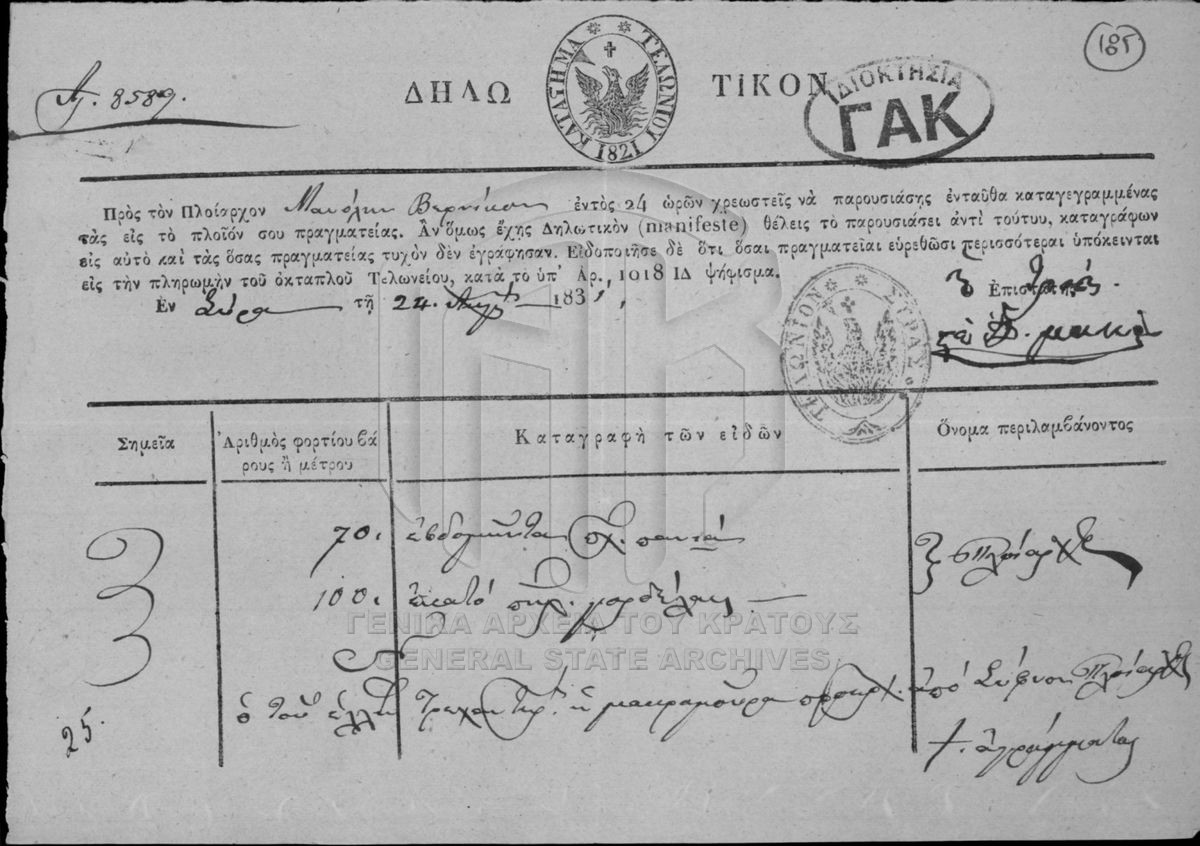 185
Αρ. 8589.
ΔΗΛΩ ΤΙΚΟΝ
ΚΑΤΑΣΤΗΜΑ ΤΕΛΩΝΙΟΥ 1821
ΙΔΙΟΚΤΗΣΙΑ
ΓΑΚ
Πρὸς τὸν Πλοίαρχον Μανόλην ἐντὸς 24 ὡρῶν χρεωστεῖς νὰ παρουσιάσης ἐνταῦθα καταγεγραμμένας
τὰς εἰς τὸ πλοῖόν σου πραγματείας. Ἂν ὅμως ἔχῃς Δηλωτικὸν (manifeste) θέλεις τὸ παρουσιάσει ἀντὶ τούτυυ, καταγράφων
εἰς αὐτὸ καὶ τὰς ὅσας πραγματείας τυχὸν δὲν ἐγράφησαν. Εἰδοποιῆσε δὲ ὅτι ὅσαι πραγματεῖαι εὑρεθῶσι περισσότεραι ὑπόκεινται
εἰς τὴν πληρωμὴν τοῦ ὀκταπλοῦ Τελωνείου, κατὰ τὸ ὑπ' Αρ. 1018 ΙΔ ψήφισμα.
Ἐν Σύρα τῇ 24. Αὐγ. 183
Ὁ Ἐπιστάτης
ΤΕΛΩΝΙΟΝ ΣΥΡΑΣ
Σημεῖα Ἀριθμὸς φορτίου βά Καταγραφὴ τῶν εἰδῶν Ὄνομα περιλαμβάνοντος
ρους ἢ μέτρου
70. ἑβδομῆντα πανιά πλοίαρχος
100. ἑκατό
ΓΕΝΙΚΑ ΑΡΧΕΙΑ ΤΟΥ ΚΡΑΤΟΥΣ
GENERAL STATE ARCHIVES
ὁ τοῦ ἀπό Σύφνον πλοίαρχος
25. +. ἀγράμματος